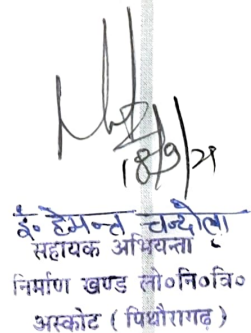 18/9/21
इं० हेमन्त चन्दोला
सहायक अभियन्ता
निर्माण खण्ड लो०नि०वि०
अस्कोट ( पिथौरागढ )